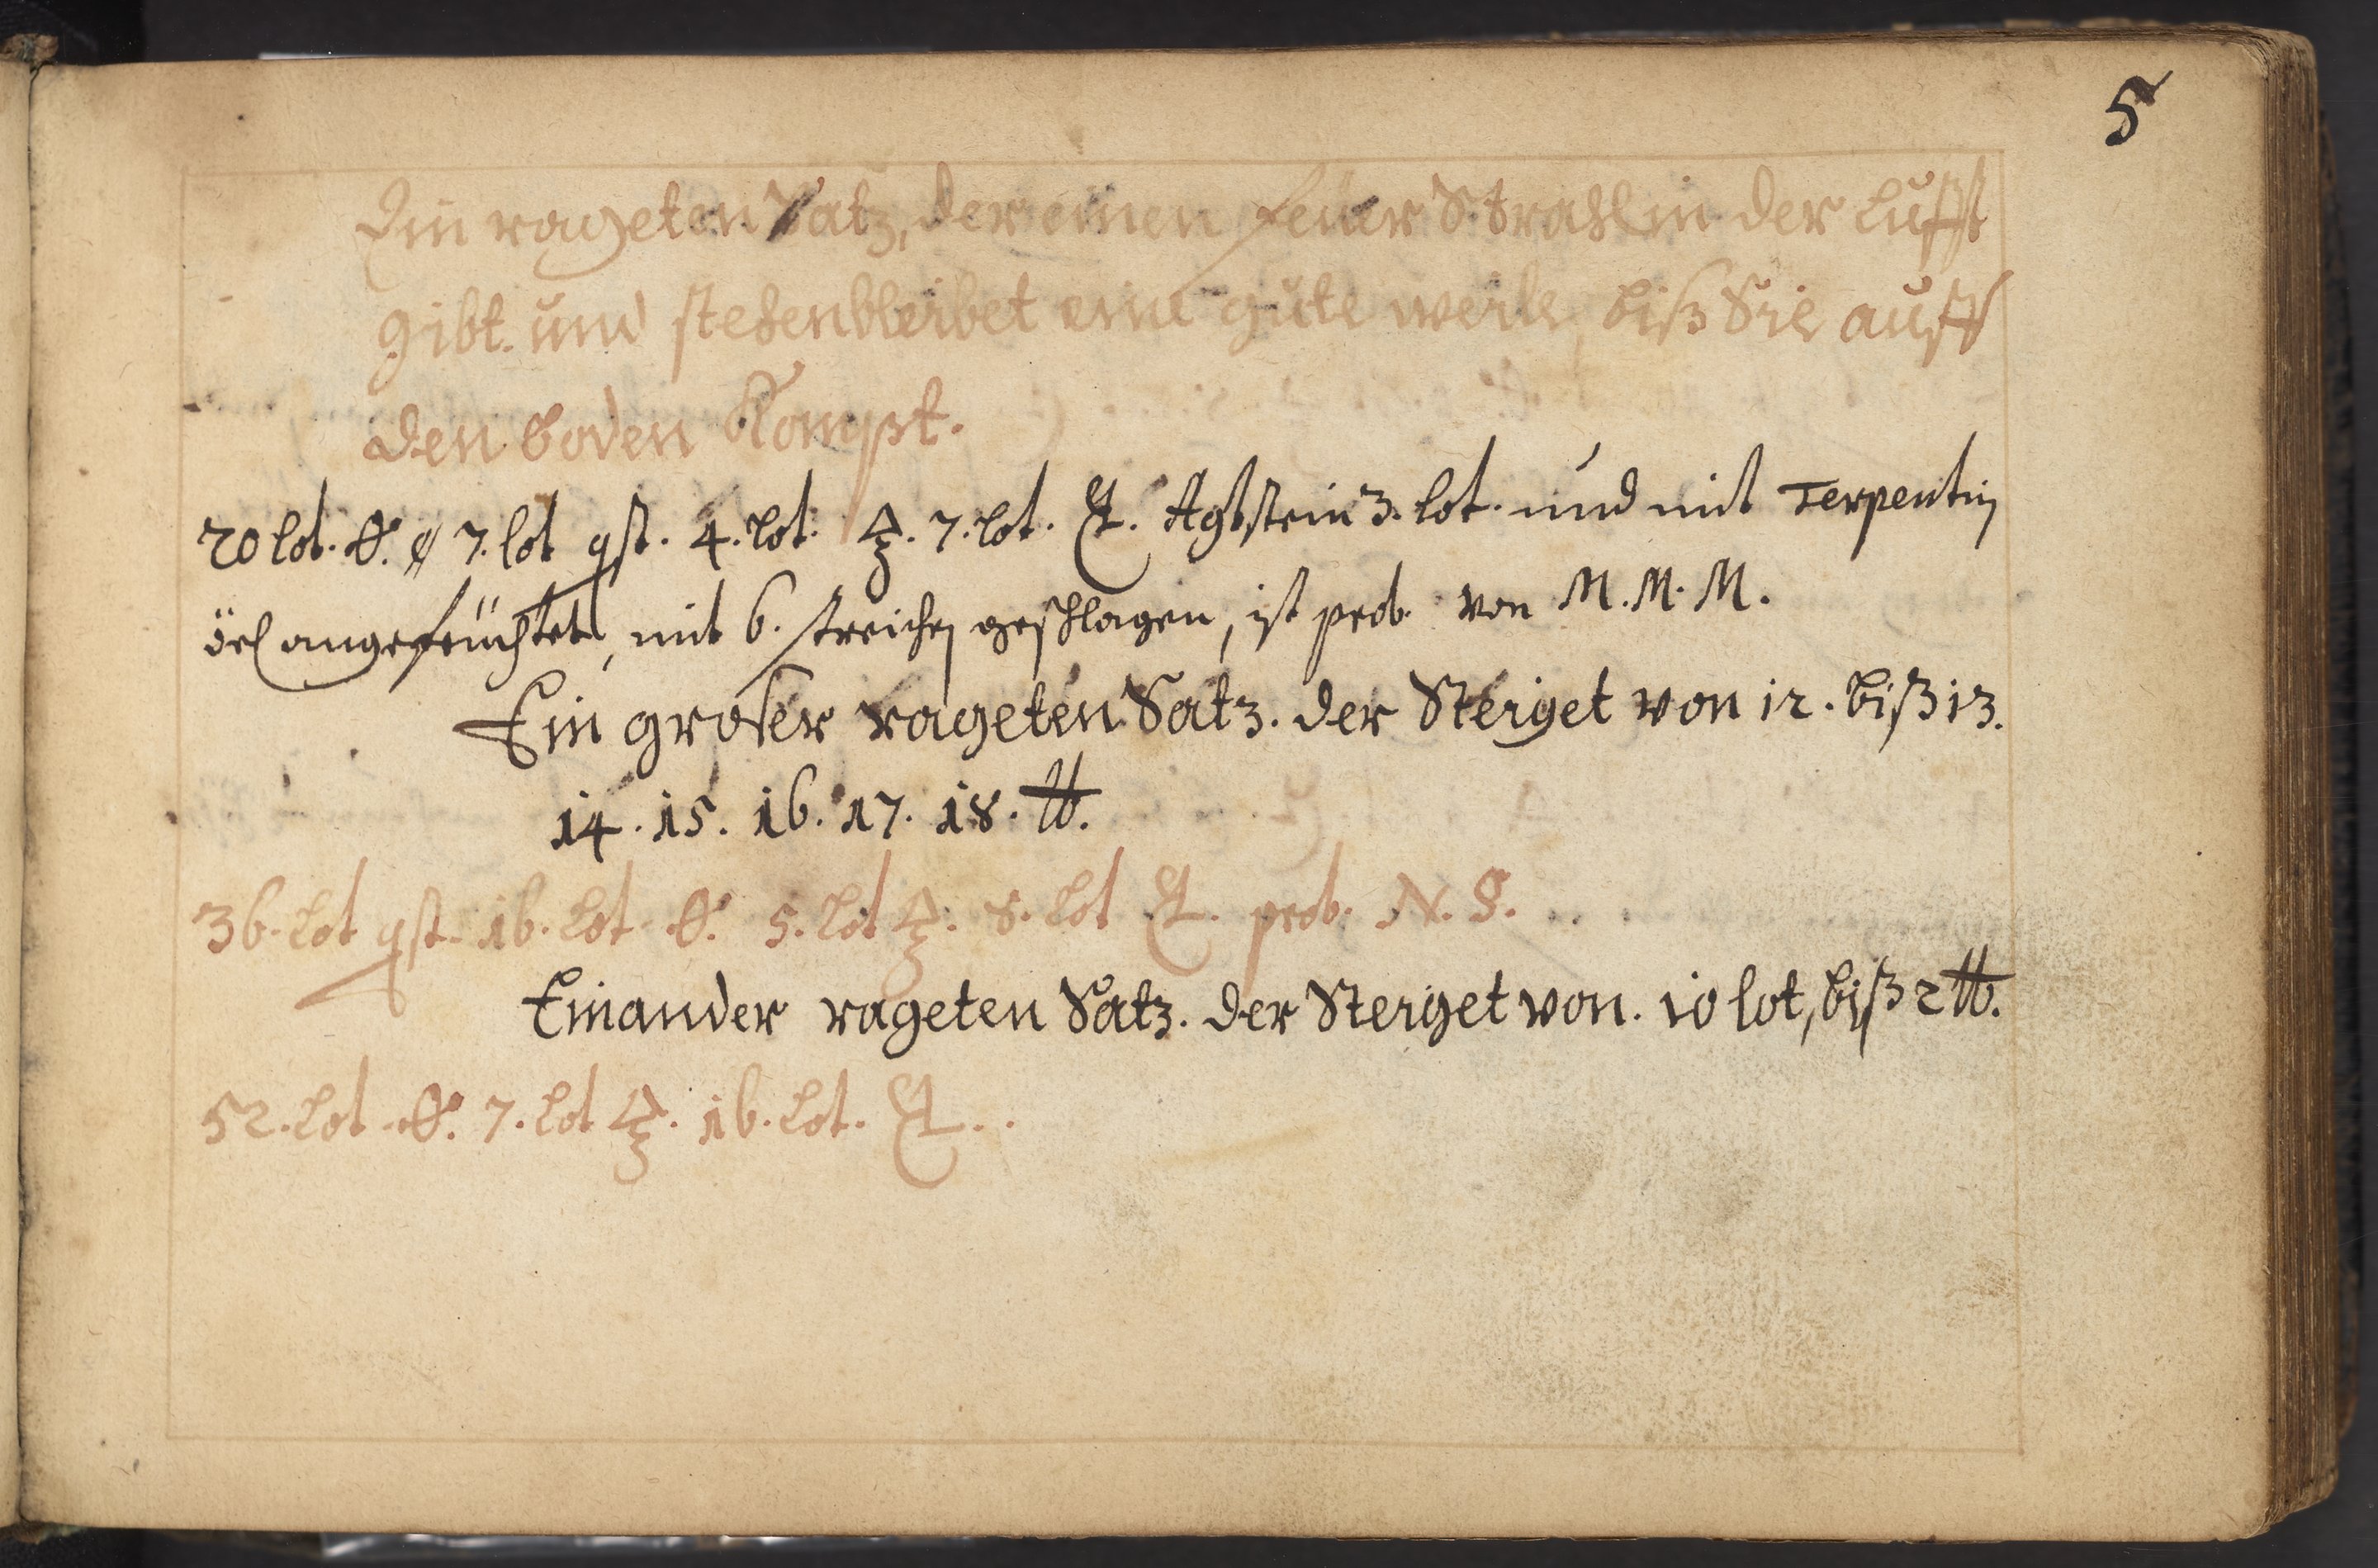 5
Ein rageten Satz, der einen feuer Strahl in der Lufft
gibt. und stehenbleibet eine gute weile, biß Sie auff
den boden Kompt.
20 lot. 7. lot 4. lot. 7. lot. Agtstein 3. lot. und mit Terpentin
öel angefeuchtet, mit 6. streichen geschlagen, ist prob. von M. M. M.
Ein großer rageten Satz. der Steiget von 12. biß 13.
14. 15. 16. 17. 18. ℔.
36. Lot 16. Lot. 5. Lot 8. Lot prob. N. S.
Einander rageten Satz. der Steiget von. 10 lot, biß 2 ℔.
52. Lot 7. Lot 16. Lot.